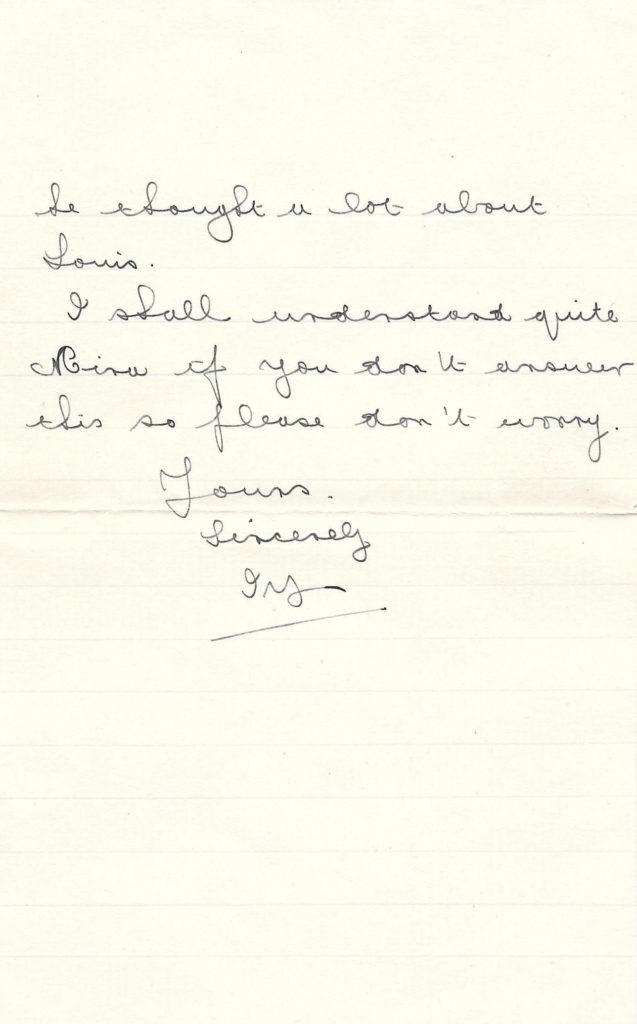 he thought a lot about
Louis.
I shall understand quite
Mira if you don't answer
this so please don't worry.
Yours.
Sincerely
Ivy